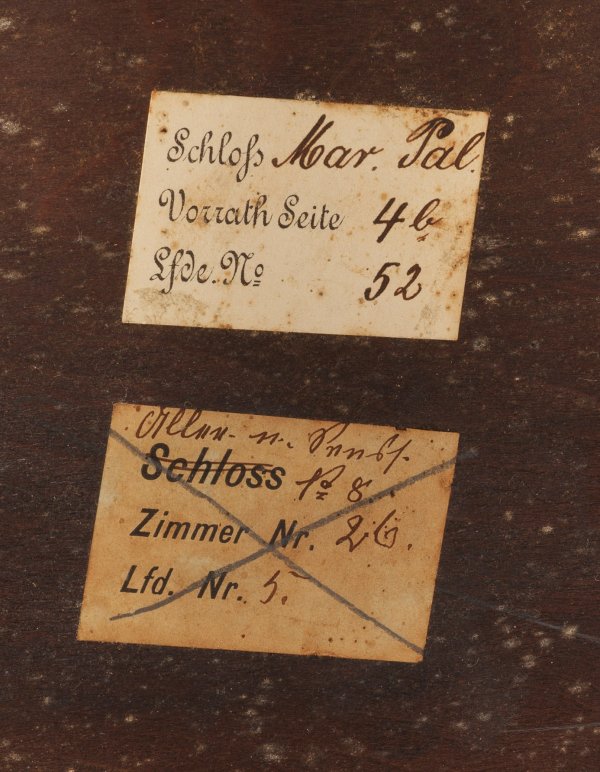 Schloß Mar. Pal.
Vorrath Seite 4b
Lfde. No 52
Schloss No 8.
Zimmer Nr. 26.
Lfd. Nr. 5.